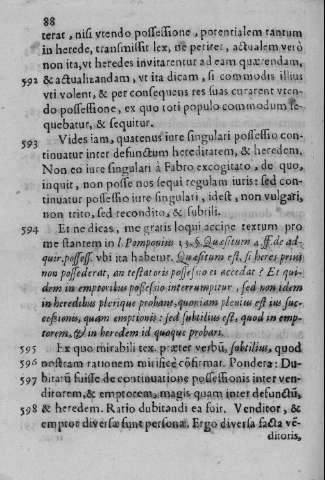 88
terat, nisi vtendo possessione, potentialem tantum
in herede, transmissit lex, ne periret, actualem verò
non ita, vt heredes invitarentur ad eam quærendam,
592 & actualizandam, vt ita dicam, si commodis illius
vti volent, & per consequens res suas curarent vten-
do possessione, ex quo toti populo commodum se-
quebatur, & sequitur.
593 Vides iam, quatenus iure singulari possessio con-
tinuatur inter defunctum hereditatem, & heredem.
Non eo iure singulari à Fabro excogitato, de quo,
inquit, non posse nos sequi regulam iuris: sed con-
tinuatur possessio iure singulari, idest, non vulgari,
non trito, sed recondito, & subtili.
594 Et ne dicas, me gratis loqui accipe textum pro
me stantem in l. Pomponius 13. §. Quæsitum 4. ff. de ad-
quir. possess. vbi ita habetur. Quæsitum est, si heres prius
non possederat, an testatoris possessio ei accedat? Et qui-
dem in emptoribus possessio interrumpitur, sed non idem
in heredibus plerique probant, quoniam plenius est ius suc-
cessionis, quam emptionis: sed subtilius est, quod in emp-
torem, & in heredem id quoque probari.
595 Ex quo mirabili tex. præter verbũ, subtilius, quod
596 nostram rationem mirificè cõfirmat. Pondera: Du-
597 bitatũ fuisse de continuatione possessionis inter ven-
ditorem, & emptorem, magis quam inter defunctũ,
598 & heredem. Ratio dubitandi ea fuit. Venditor, &
emptor diversæ sunt personæ. Ergo diversa facta vẽ-
ditoris,